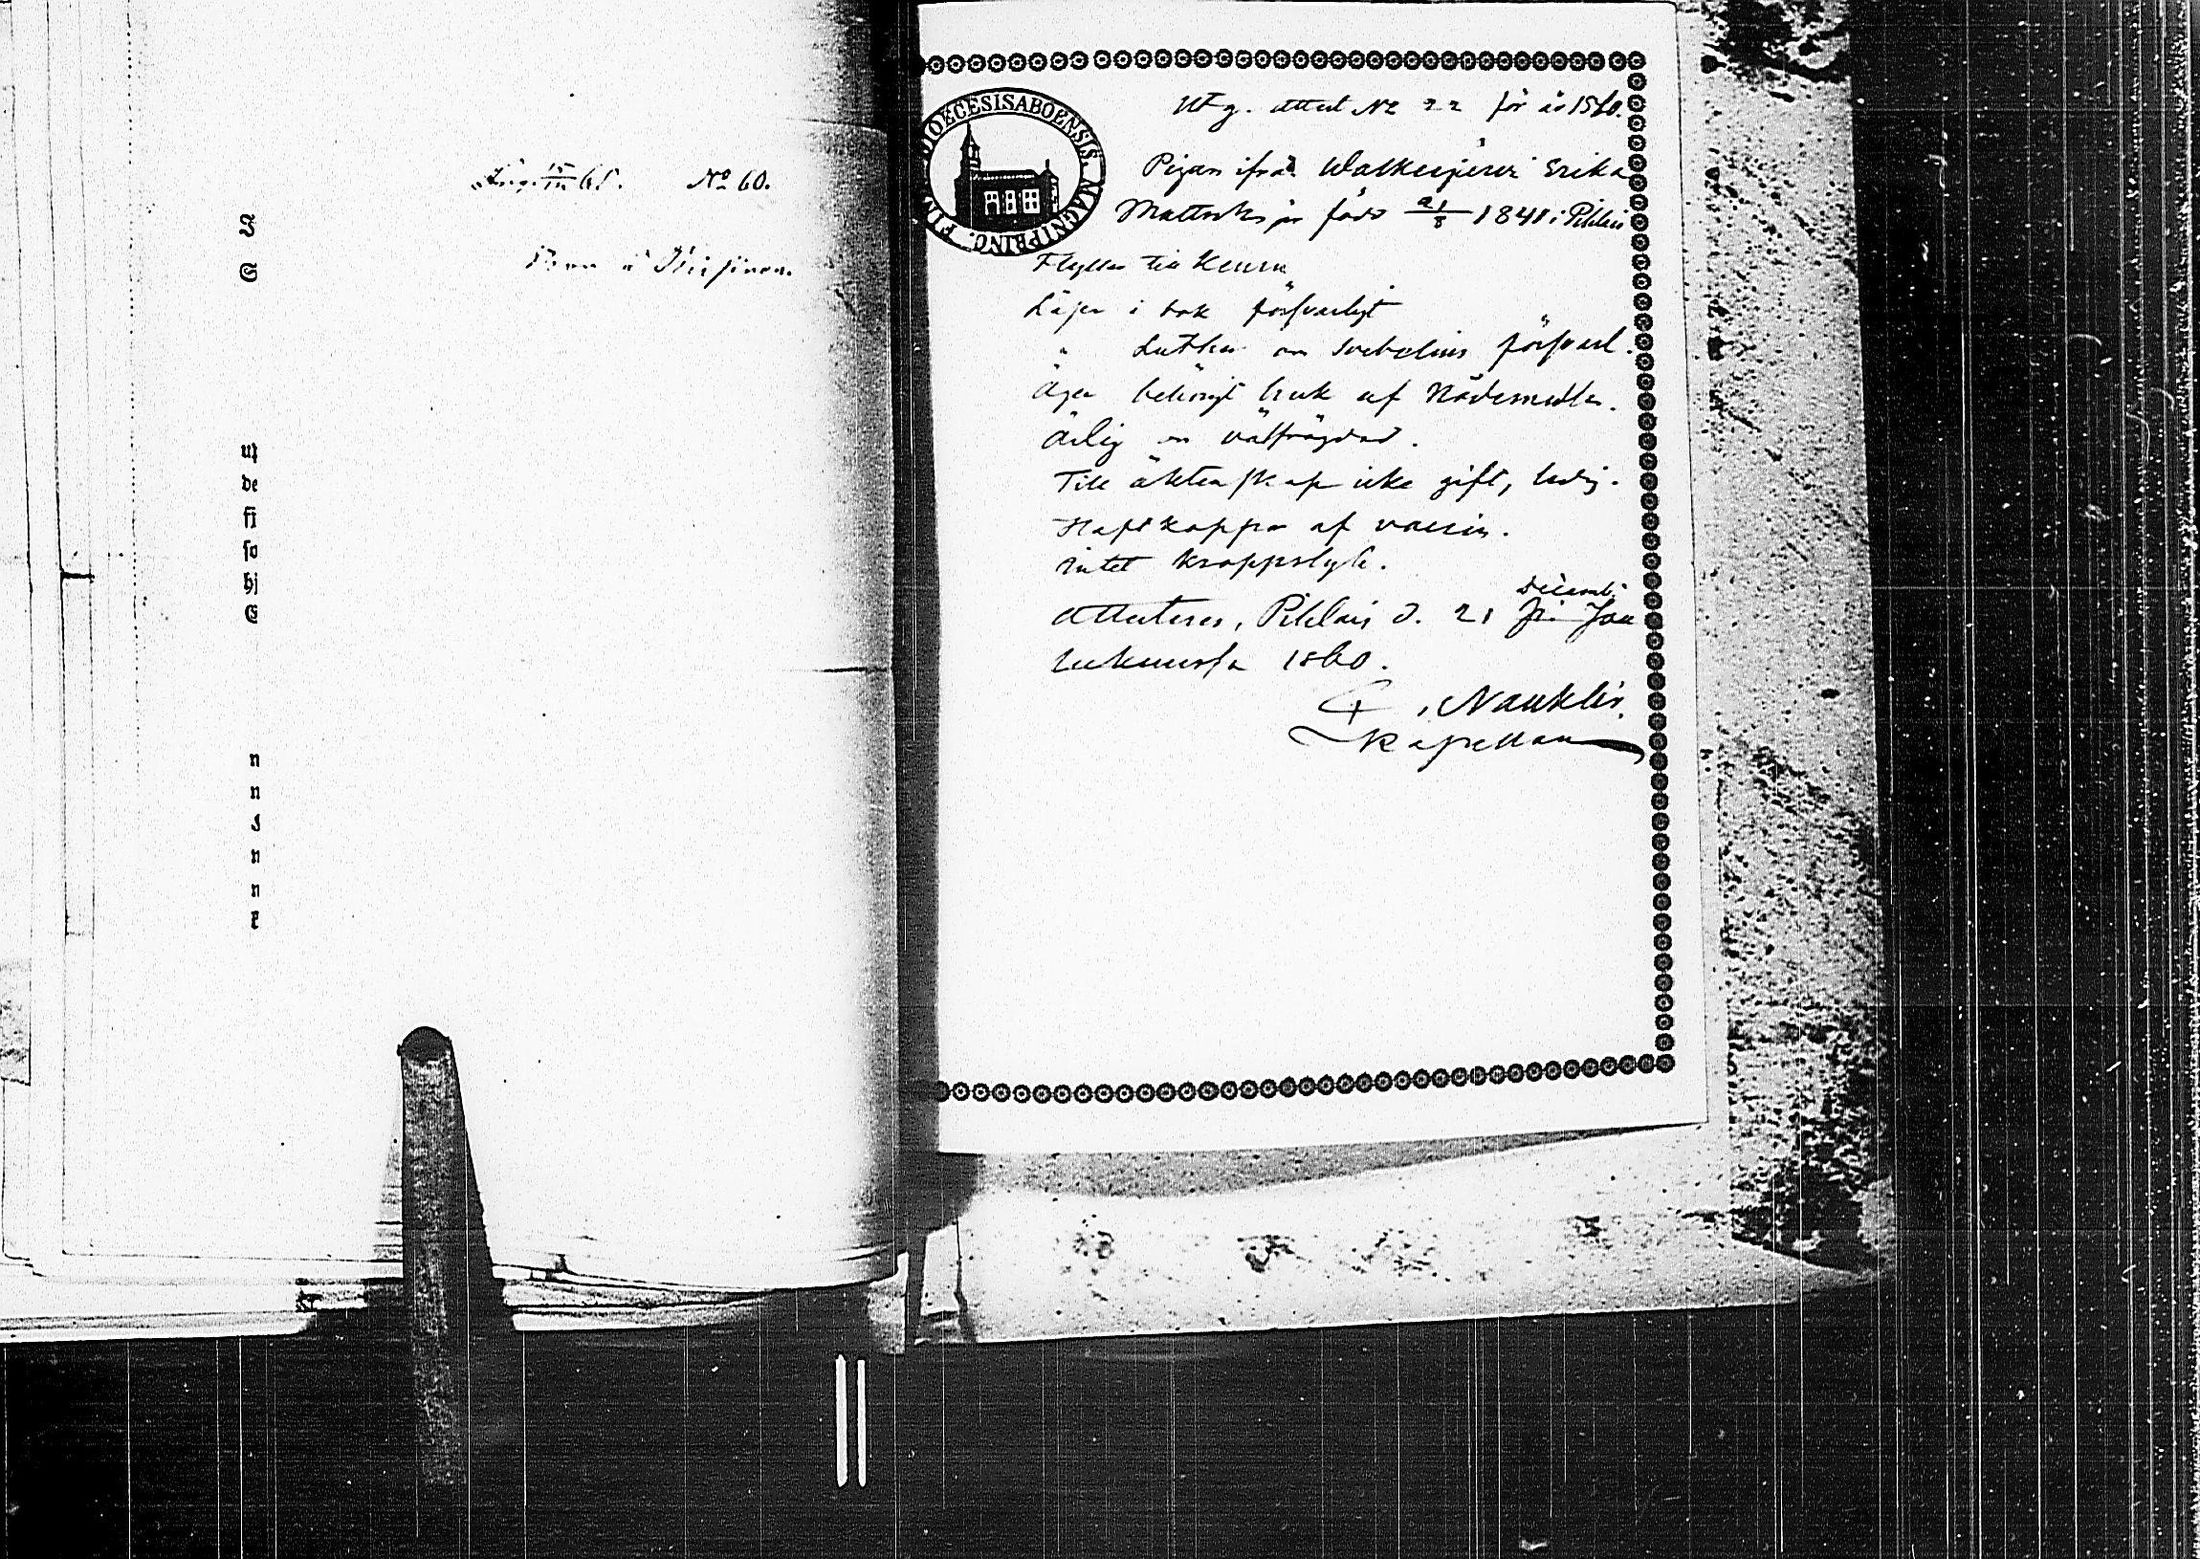 No 60.
S
S
ut
de
fi
so
bj
S
n
n
I
n
n
k
DIOECESISABOENSIS. MAGNIPRINC. FIN
Utg. attest No 22 för år 1860.
Pigan ifrån Walkeajervi Erika
Mattsdr är född 21/8 1841 i Pihlais
Flyttar till Keuru
Läser i bok försvarligt
" Luther om Svebelius försvarl.
Äger behörigt bruk af Nådemedlen.
Ärlig en välfrägdad.
Till äktenskap icke gift, ledig.
Haft koppor af vaccin.
Intet kroppslyte.
Decemb.
Attesteras, Pihlais d. 21
1860.
Nauklér.
Kapellan